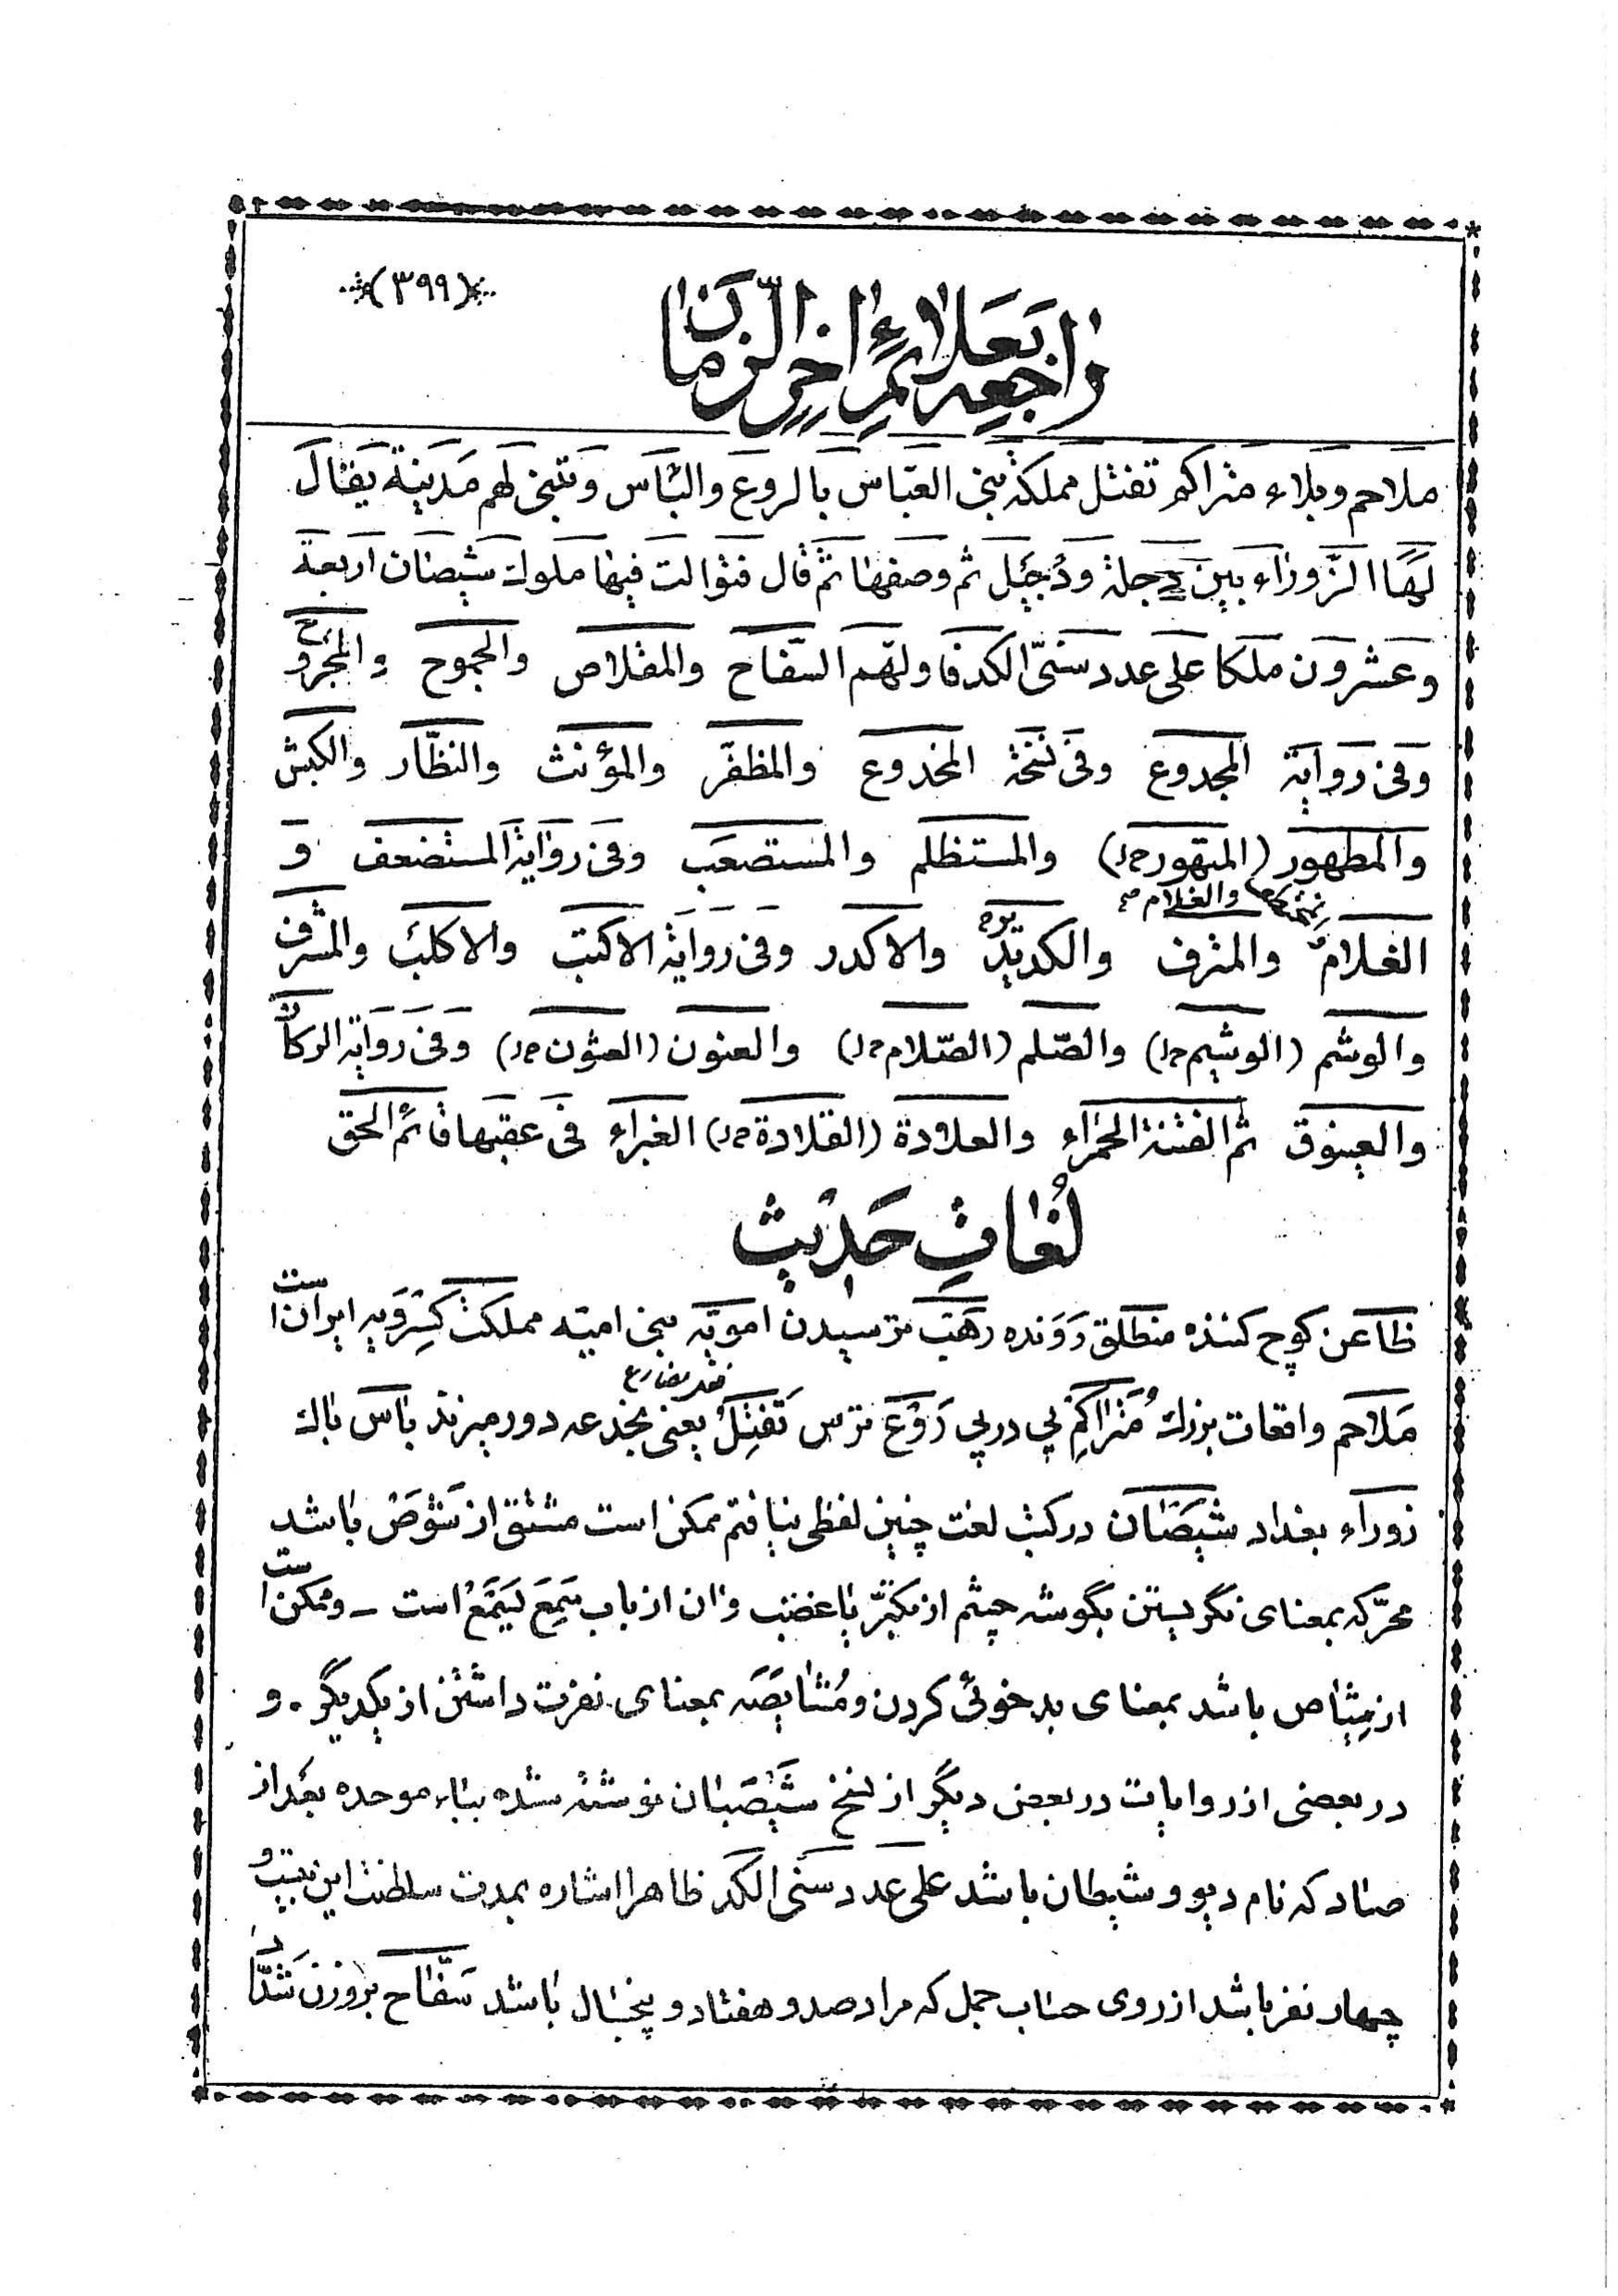 (۳۹۹)
راجعه بعلائم اخر الزمان
ملاحم وبلاء متراكم تفتل مملكة بنی العباس بالروع والبأس وتبنی لهم مدينة يقال
لها الزوراء بين دجلة ودجيل ثم وصفها ثم قال فتوالت فيها ملوك شيصان اربعة
وعشرون ملكا على عدد سنی الكد فاولهم السفاح والمقلاص والجموح والمجروح
وفی رواية المجدوع وفی نسخة المخدوع والمظفر والمؤنث والنظار والكبش
والمطهور (المتهور خ‌ل) والمستظلم والمستصعب وفی رواية المستضعف و
الغلام والمترف والكديد والاكدر وفی رواية الاكتب والاكلب والمشرف
والغلام
والوشم (الوشيم خ‌ل) والصلم (الصلام خ‌ل) والعنون (العثون خ‌ل) وفی رواية الركاز
والعينوق ثم الفتنة الحمراء والعلادة (القلادة خ‌ل) الغبراء فی عقبها قائم الحق
لُغاتِ حَديث
ظاعن كوچ كننده منطلق رَونده رَهَب ترسيدن اموية بنی امیه مملكت كِسرَويه ايران است
مَلاحم واقعات بزرك مُتَراكِم پی در پی رَوْع ترس تَفتِلُ يعنی بخدعه دور ميزند باس باك
زوراء بغداد شَيصَان در كتب لغت چنين لفظی نيافتم ممكن است مشتق از شَوَص باشد
محركه بمعنای نگريستن بگوشه چشم از تكبر يا غضب و ان از باب سَمِعَ يَسمَعُ است ـ و ممكن است
از شِياص باشد بمعنای بد خوئی كردن و مُشايَصَه بمعنای نفرت داشتن از يكديگر ـ و
در بعضی از روايات در بعض ديگر از نسخ شَيصَبان نوشته شده بباء موحده بعد از
صاد كه نام ديو و شيطان باشد على عدد سنی الكد ظاهرا اشاره بمدت سلطنت اين بيست و
چهار نفر باشد از روی حساب جمل كه مراد صد و هفتاد و پنجسال باشد سَفّاح بر وزن شَدّاد